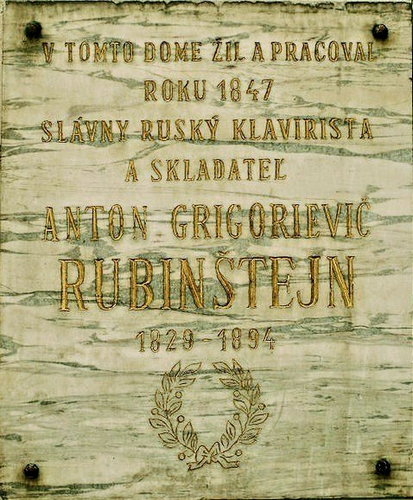 V TOMTO DOME ŽIL A PRACOVAL
ROKU 1847
SLÁVNY RUSKÝ KLAVIRISTA
A SKLADATEĽ
ANTON GRIGORIEVIČ
RUBINŠTEJN
1829-1894